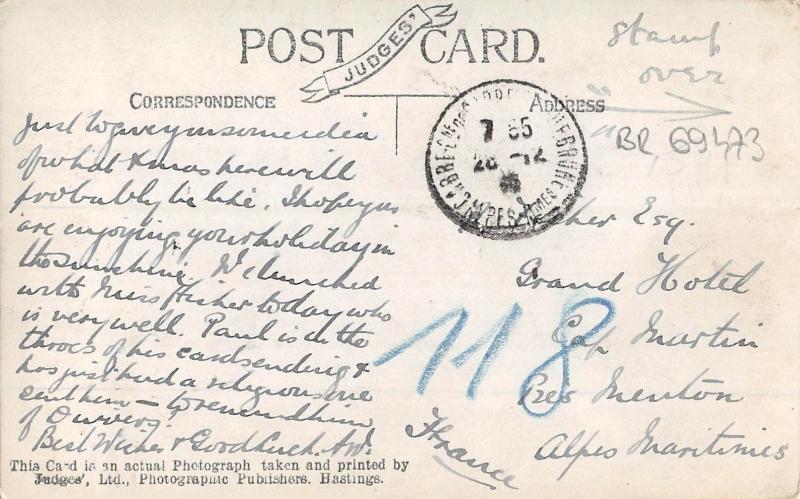 POST CARD.
JUDGES'
CORRESPONDENCE
ADDRESS
stamp
over
BR 69473
Just to give you some idea
of what Xmas here will
probably be like. I hope you
are enjoying your holiday in
the sunshine. We lunched
with Miss Fisher today who
is very well. Paul is in the
throes of his card sending &
has just had a religious one
sent him — to remind him
of
Best Wishes & Good Luck.
7 55
28 -12
Esq.
Grand Hotel
Cap Martin
Près Menton
Alpes Maritimes
France
118
This Card is an actual Photograph taken and printed by
Judges', Ltd., Photographic Publishers, Hastings.